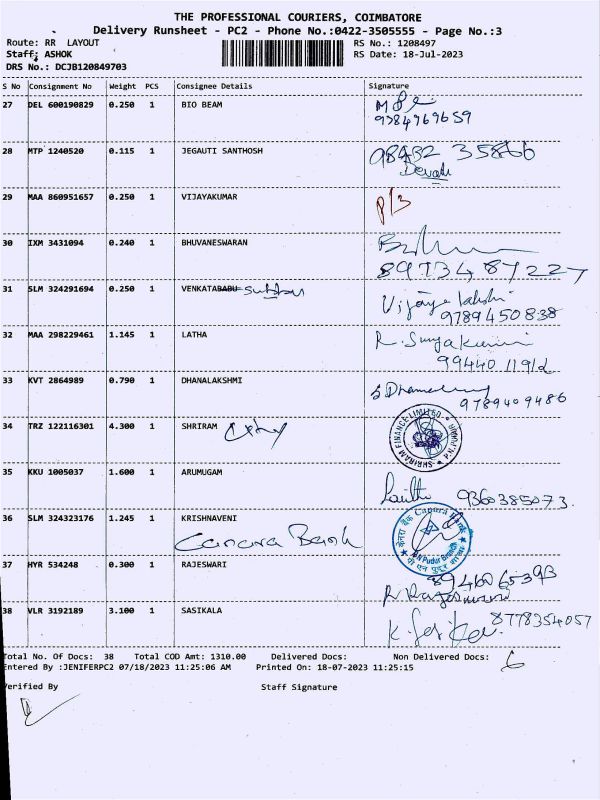 THE PROFESSIONAL COURIERS, COIMBATORE
Delivery Runsheet - PC2 - Phone No.:0422-3505555 - Page No.:3
Route: RR LAYOUT RS No.: 1208497
Staff: ASHOK RS Date: 18-Jul-2023
DRS No.: DCJB120849703
S No Consignment No Weight PCS Consignee Details Signature
27 DEL 600190829 0.250 1 BIO BEAM
9384969659
28 MTP 1240520 0.115 1 JEGAUTI SANTHOSH
Devadi
29 MAA 860951657 0.250 1 VIJAYAKUMAR P/3
30 IXM 3431094 0.240 1 BHUVANESWARAN
8973487227
31 SLM 324291694 0.250 1 VENKATABABU Subbu Vijaya lakshmi
9789450838
32 MAA 298229461 1.145 1 LATHA R. Suryakumari
33 KVT 2864989 0.790 1 DHANALAKSHMI
9789409486
34 TRZ 122116301 4.300 1 SHRIRAM
SHRIRAM FINANCE LIMITED P.N.PUDUR
35 KKU 1005037 1.600 1 ARUMUGAM
Lalitha 9360385073
36 SLM 324323176 1.245 1 KRISHNAVENI
Canara Bank
केनरा बैंक Canara Bank
P N Pudur Branch
37 HYR 534248 0.300 1 RAJESWARI
R Rajeswari
38 VLR 3192189 3.100 1 SASIKALA 8778354057
Total No. Of Docs: 38 Total COD Amt: 1310.00 Delivered Docs: Non Delivered Docs: 6
Entered By :JENIFERPC2 07/18/2023 11:25:06 AM Printed On: 18-07-2023 11:25:15
Verified By Staff Signature